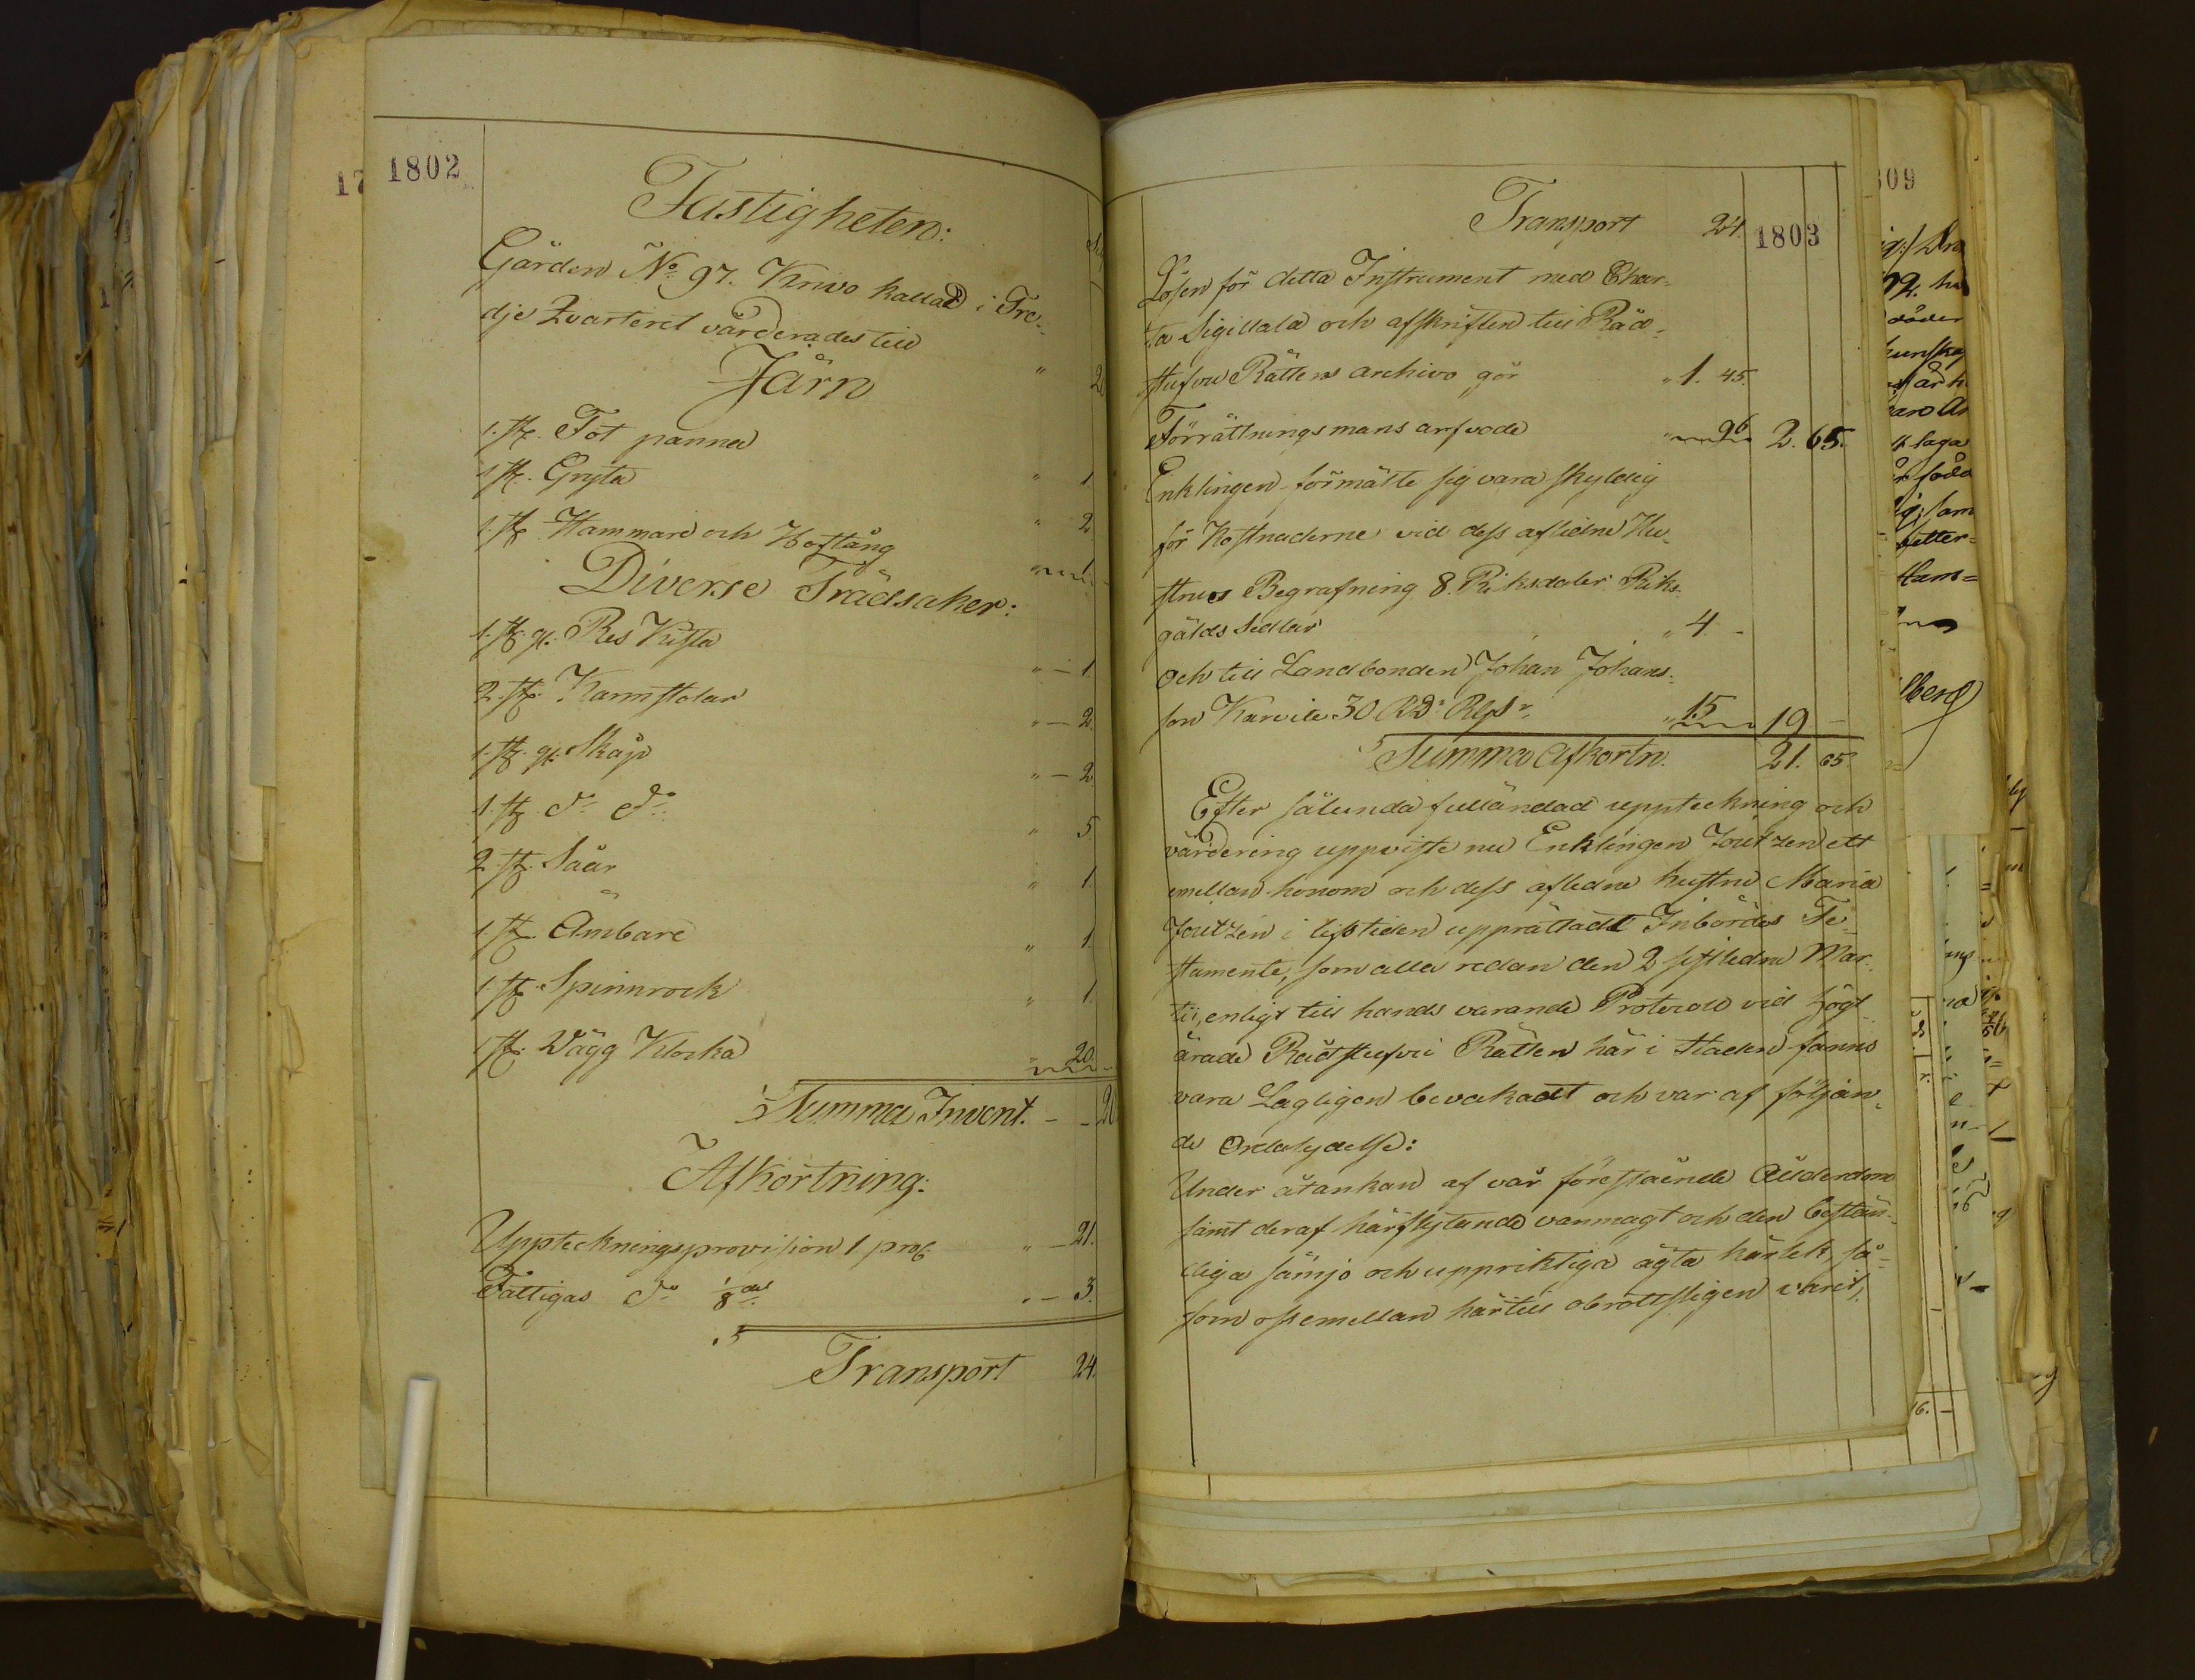 1802
Fastigheten:
Gården No 97. Knivo kallad i Tre-
dje Qvarteret värderades till " 2
Järn
1. st. Fot panna " 1
1 st. Gryta " 2
1. st. Hammare och Hoftång " 1
Diverse Trädsaker:
1. st. gl. Res Kista " – 1
2. st. Karmstolar " – 2
1. st. gl. Skåp " – 2
1. st. do do " 5
2 st. Såår " 1.
1 st. Ämbare " 1.
1 st. Spinnrock " 1.
1 st. Wägg Klocka " 20.
Summa Invent. – – 20
Afkortning:
Uppteckningsprovision 1. proc. " – 21.
Fattigas do 1/8 del " – 3.
Transport 24.
1803
Transport 24.
Lösen för detta Instrument med Char-
ta Sigillata och afskriften till Råd-
stufvu Rättens archivo gör " 1. 45.
Förrättningsmans arfvode " 96 2. 65.
Enklingen förmälte sig vara skyldig
för Kostnaderne vid dess aflidne Hu-
strus Begrafning 8. Riksdaler Riks-
gälds Sedlar " 4 –
och till Landbonden Johan Johans-
son Karvila 30 RD. Rgs. " 15 19 –
Summa Afkortn. 21. 65.
Efter sålunda fulländad uppteckning och
värdering uppviste nu Enklingen Joutzen ett
emellan honom och dess afledne hustru Maria
Joutzen i lifstiden upprättadt Inbördes Te-
stamente, som alla redan den 2 sistledne Mar-
tii, enligt till hands varande Protocoll vid högt-
ärade Rådstufvu Rätten här i staden fanns
vara Lagligen bevakadt och var af följan-
de Ordalydelse:
Under åtankan af vår förestående Ålderdom
samt deraf härflytande vanmagt och den bestän-
diga sämjo och uppriktiga ägta kärlek, så-
som oss emellan härtill obrottsligen varit,